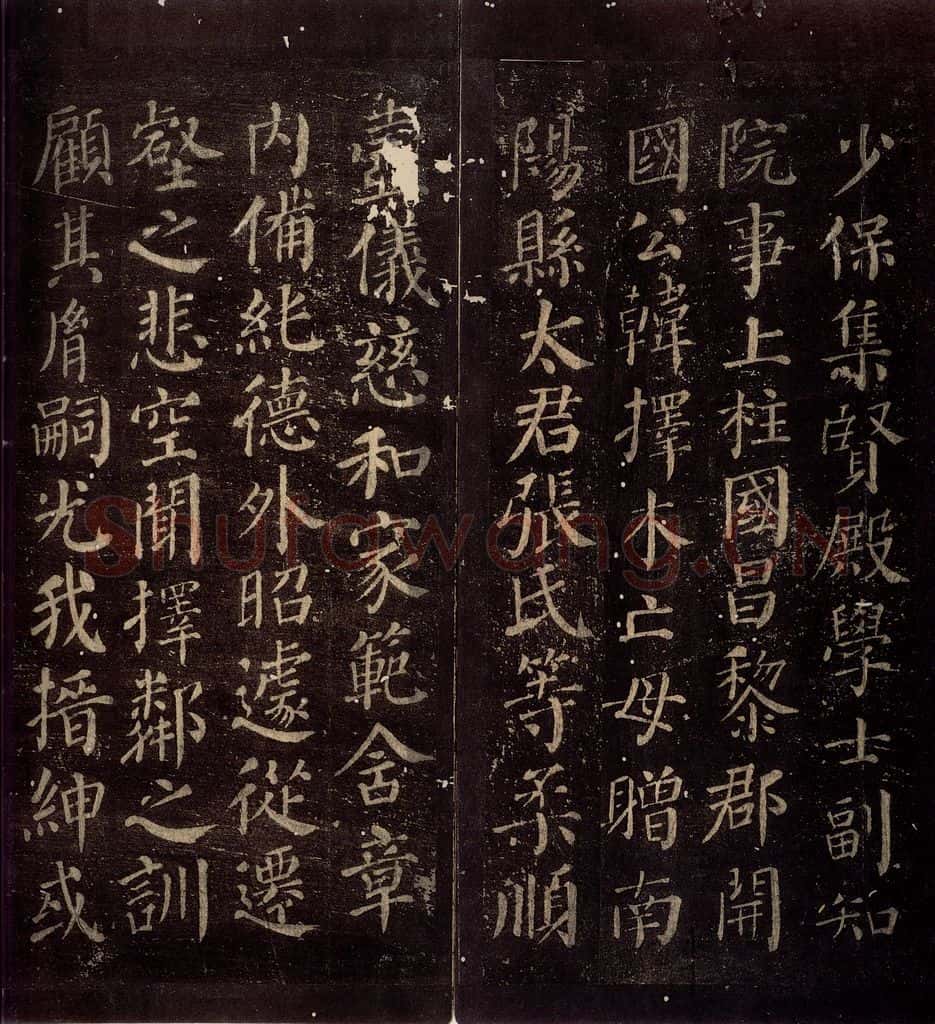 少保集賢殿學士副知
院事上柱國昌黎郡開
國公韓擇木亡母贈南
陽縣太君張氏等柔順
壼儀慈和家範含章
内備純德外昭遽從遷
壑之悲空聞擇鄰之訓
顧其胤嗣光我搢紳或
Shufawang.CN